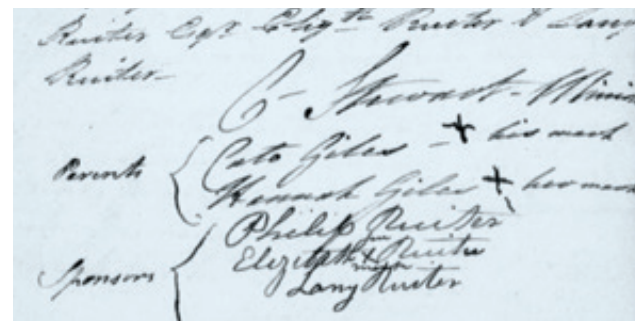 Ruiter Esqr Elizth Ruiter & Lany
Ruiter—
C— Stewart— Minis
Parents { Cato Giles — + his mark
Hannah Giles + her mark
Philip Ruiter
Sponsors { Elizabeth + Ruiter
Lany Ruiter